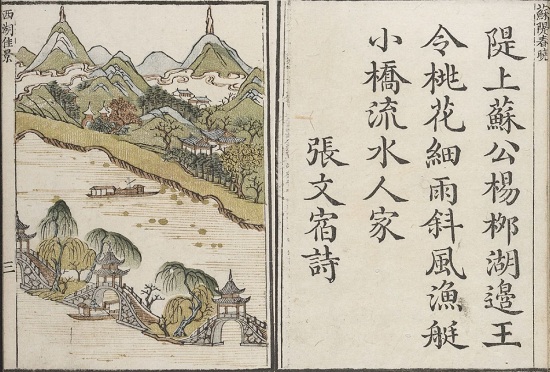 蘇隄春曉
隄上蘇公楊柳湖邉王
令桃花細雨斜風漁艇
小橋流水人家
張文宿詩
西湖佳景
三